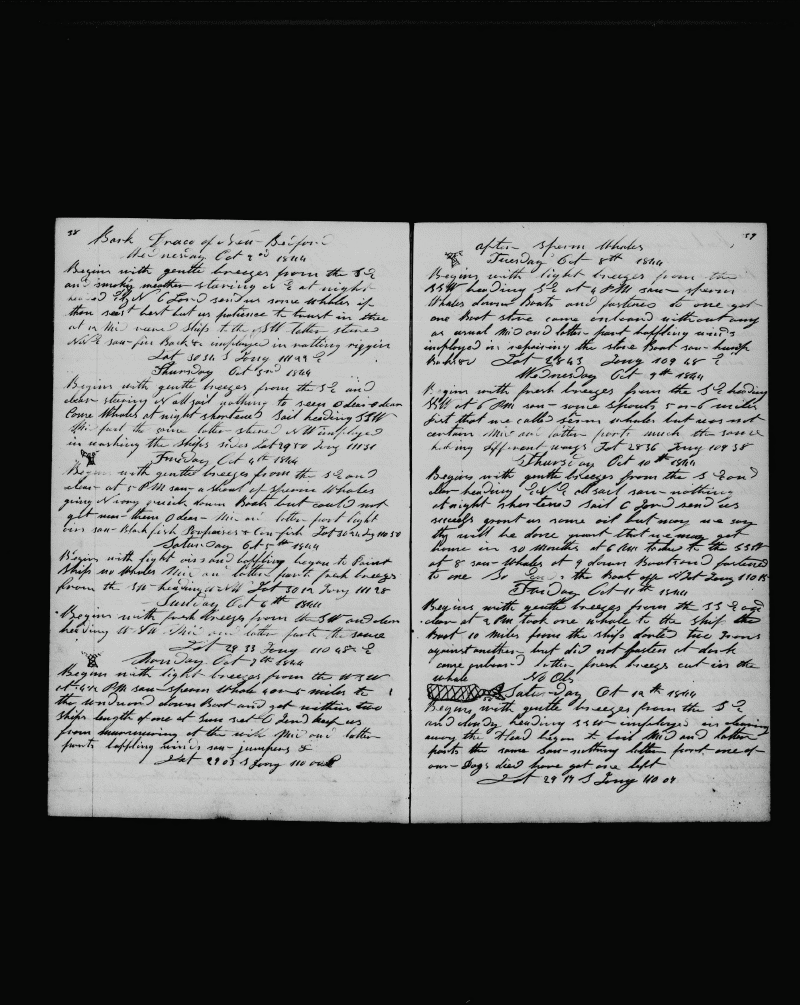 38
Bark Draco of New Bedford
Wednesday Oct 2nd 1844
Begins with gentle breezes from the S E
and smokey weather stearing N E at night
N O Lord send us some whales if
thou seest best but us patience to trust in thee
at 12 Mid ships to the SW latter steered
N E saw fin Back & imployed in ratling riggin
Lat 30 34 S Long 111 42 E
Thursday Oct 3rd 1844
Begins with gentle breezes from the S E and
clear stearing N all sail nothing to seen O dear O dear
Come Whales at night shortened Sail heading SSW
Mid part the same latter steared N W imployed
in washing the ships sides Lat 29 50 Long 111 31
Friday Oct 4th 1844
Begins with gentle breezes from the S E and
clear at 5 PM saw a shoal of sperm Whales
going N very quick down Boats but could not
get near them O dear Mid and latter part light
airs saw Blackfish Porpoises & Cow fish Lat 30 24 Long 110 50
Saturday Oct 5th 1844
Begins with light airs and baffling began to Paint
Ship no Whales Mid and latter parts fresh breezes
from the SW heading W N W Lat 30 12 Long 111 28
Sunday Oct 6th 1844
Begins with fresh breezes from the SW and clear
heading W S W Mid and latter parts the same
Lat 29 33 Long 110 48 E
Monday Oct 7th 1844
Begins with light breezes from the W S W
at PM saw sperm Whale 4 or 5 miles to
the windward down Boat and got within two
Ships length of one at Sun set O Lord keep us
from murmuring at the with Mid and latter
parts baffling winds saw jumpers &
Lat 29 03 S Long 110
59
after Sperm Whales
Tuesday Oct 8th 1844
Begins with light breezes from the
SSW heading S E at 4 PM saw sperm
Whales down Boats and fastened to one got
one Boat stove came onboard without any
as usual Mid and latter part baffling winds
imployed in repairing the stove Boat saw hump
Backs Lat 28 43 Long 109 48 E
Wednesday Oct 9th 1844
Begins with fresh breezes from the S E heading
SSW at 6 PM saw some spouts 5 or 6 miles
that we called sperm whales but was not
certain Mid and latter parts much the same
heading different ways Lat 28 36 Long 109 38
Thursday Oct 10th 1844
Begins with gentle breezes from the S E and
clear heading E N E all sail saw nothing
at night shortened sail O Lord send us
success grant us some oil but may we say
thy will be done grant that we may get
home in 30 Months at 6 AM to the SSW
at 8 saw Whales at 9 down Boats and fastened
to one So the Boat off Lat Long 110 15
Friday Oct 11th 1844
Begins with gentle breezes from the S S E and
clear at 2 PM took one whale to the Ship the
Boat 10 miles from the ship darted two Irons
against another but did not fasten at dark
came onboard latter fresh breezes cut in the
whale No Obs
Saturday Oct 12th 1844
Begins with gentle breezes from the S E
and cloudy heading SSW imployed in clearing
away the Head began to boil Mid and latter
parts the same saw nothing latter part one of
our Dogs died have got one left
Lat 29 17 S Long 110 04